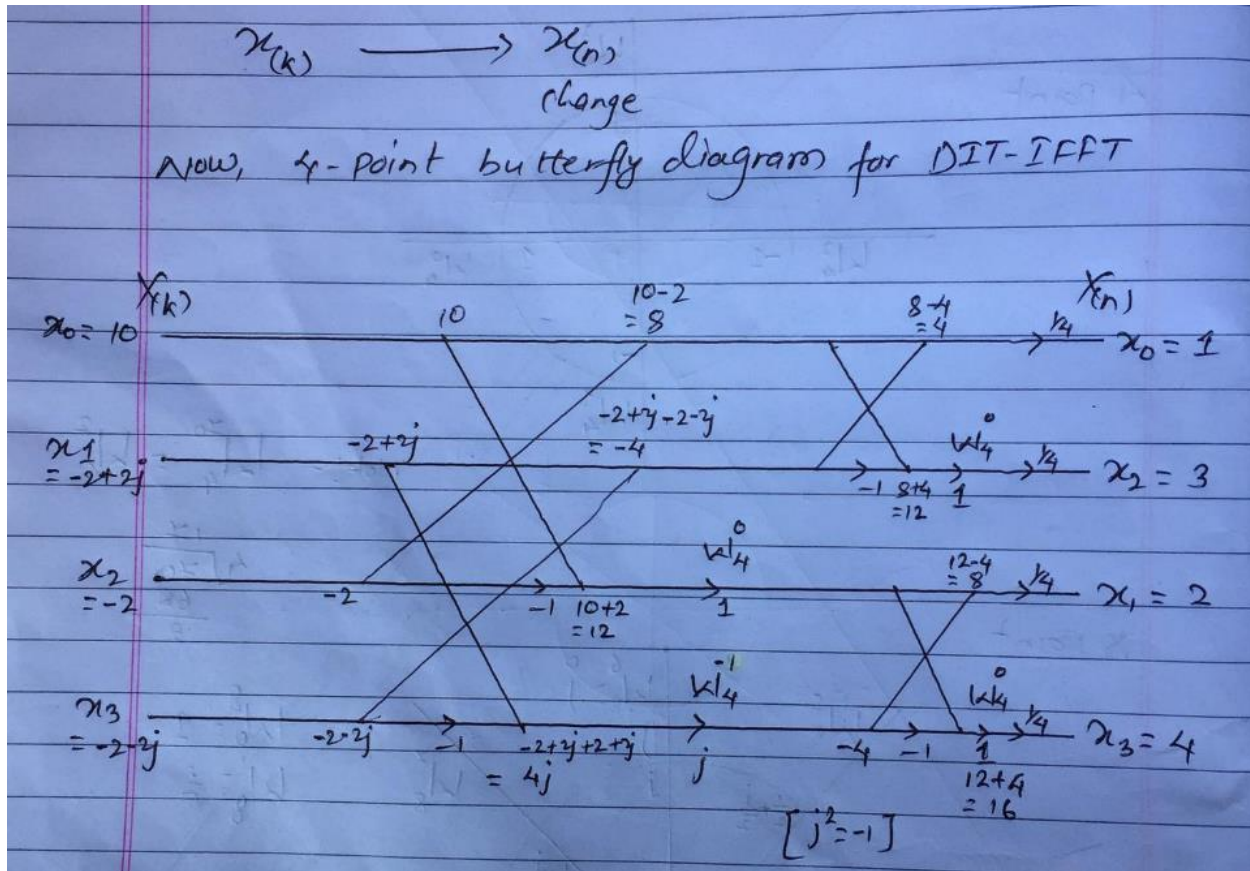 x(k) → x(n)
change
Now, 4-point butterfly diagram for DIT-IFFT
X(k)
X(n)
x0 = 10
10
10-2
= 8
8-4
= 4
1/4
x0 = 1
x1
= -2+2j
-2+2j
-2+2j-2-2j
= -4
-1
8+4
=12
W4^0
1
1/4
x2 = 3
x2
= -2
-2
-1
10+2
=12
W4^0
1
12-4
= 8
1/4
x1 = 2
x3
= -2-2j
-2-2j
-1
-2+2j+2+2j
= 4j
W4^-1
j
-4
-1
W4^0
1
12+4
= 16
1/4
x3 = 4
[j^2=-1]